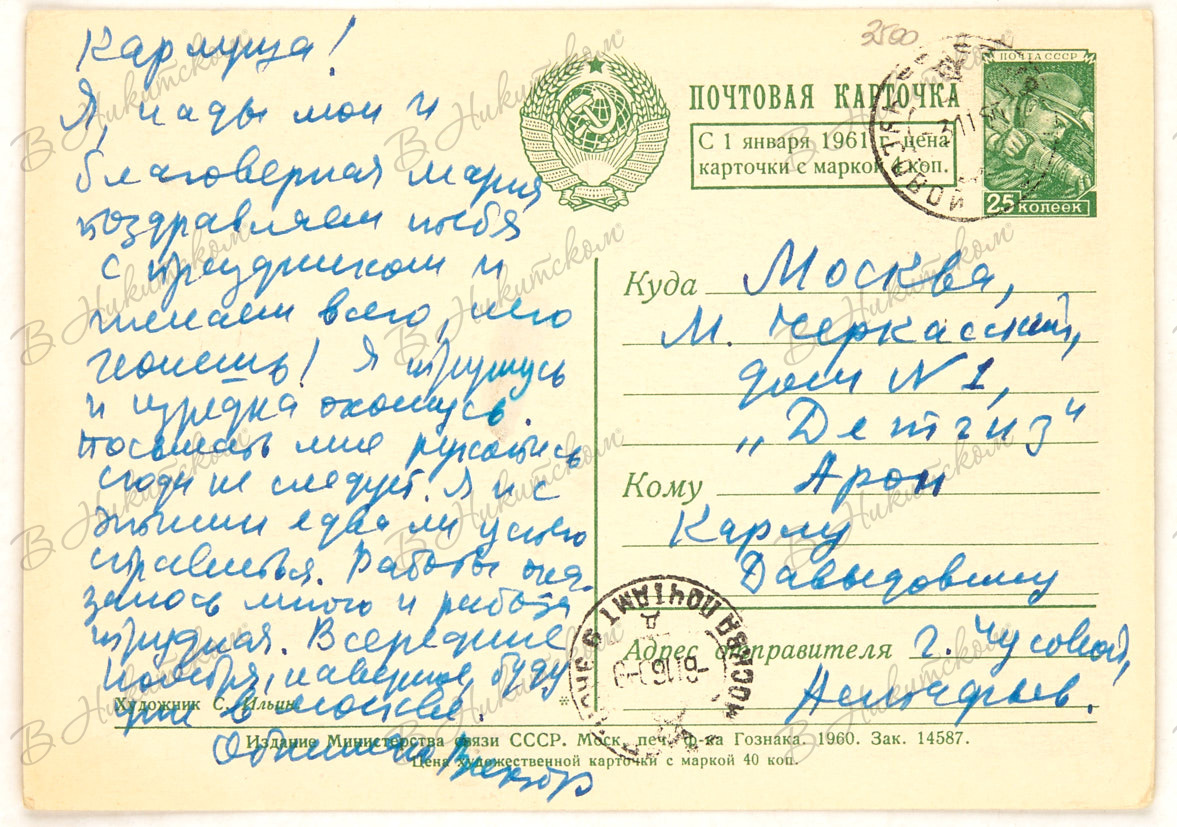 Карлуша!
Я, чады мои и
благоверная Мария
поздравляем тебя
с праздником и
желаем всего, чего
хочешь! Я тружусь
и изредка охочусь.
Посылать мне рукопись
сюда не следует. Я и с
этими едва ли успею
справиться. Работы ока-
залось много и работа
трудная. В середине
ноября, наверное, буду
уже в Москве.
Обнимаю Виктор
2500
ПОЧТА СССР
25 копеек
ПОЧТОВАЯ КАРТОЧКА
С 1 января 1961 г. цена
карточки с маркой 4 коп.
Куда Москва,
М. Черкасский,
дом N 1,
„Детгиз“
Кому Арон
Карлу
Давыдовичу
МОСКВА ПОЧТАМТ
Адрес отправителя г. Чусовой,
Астафьев.
Художник С. Ильин
Издание Министерства связи СССР. Моск. печ. ф-ка Гознака. 1960. Зак. 14587.
Цена художественной карточки с маркой 40 коп.
В Никитском